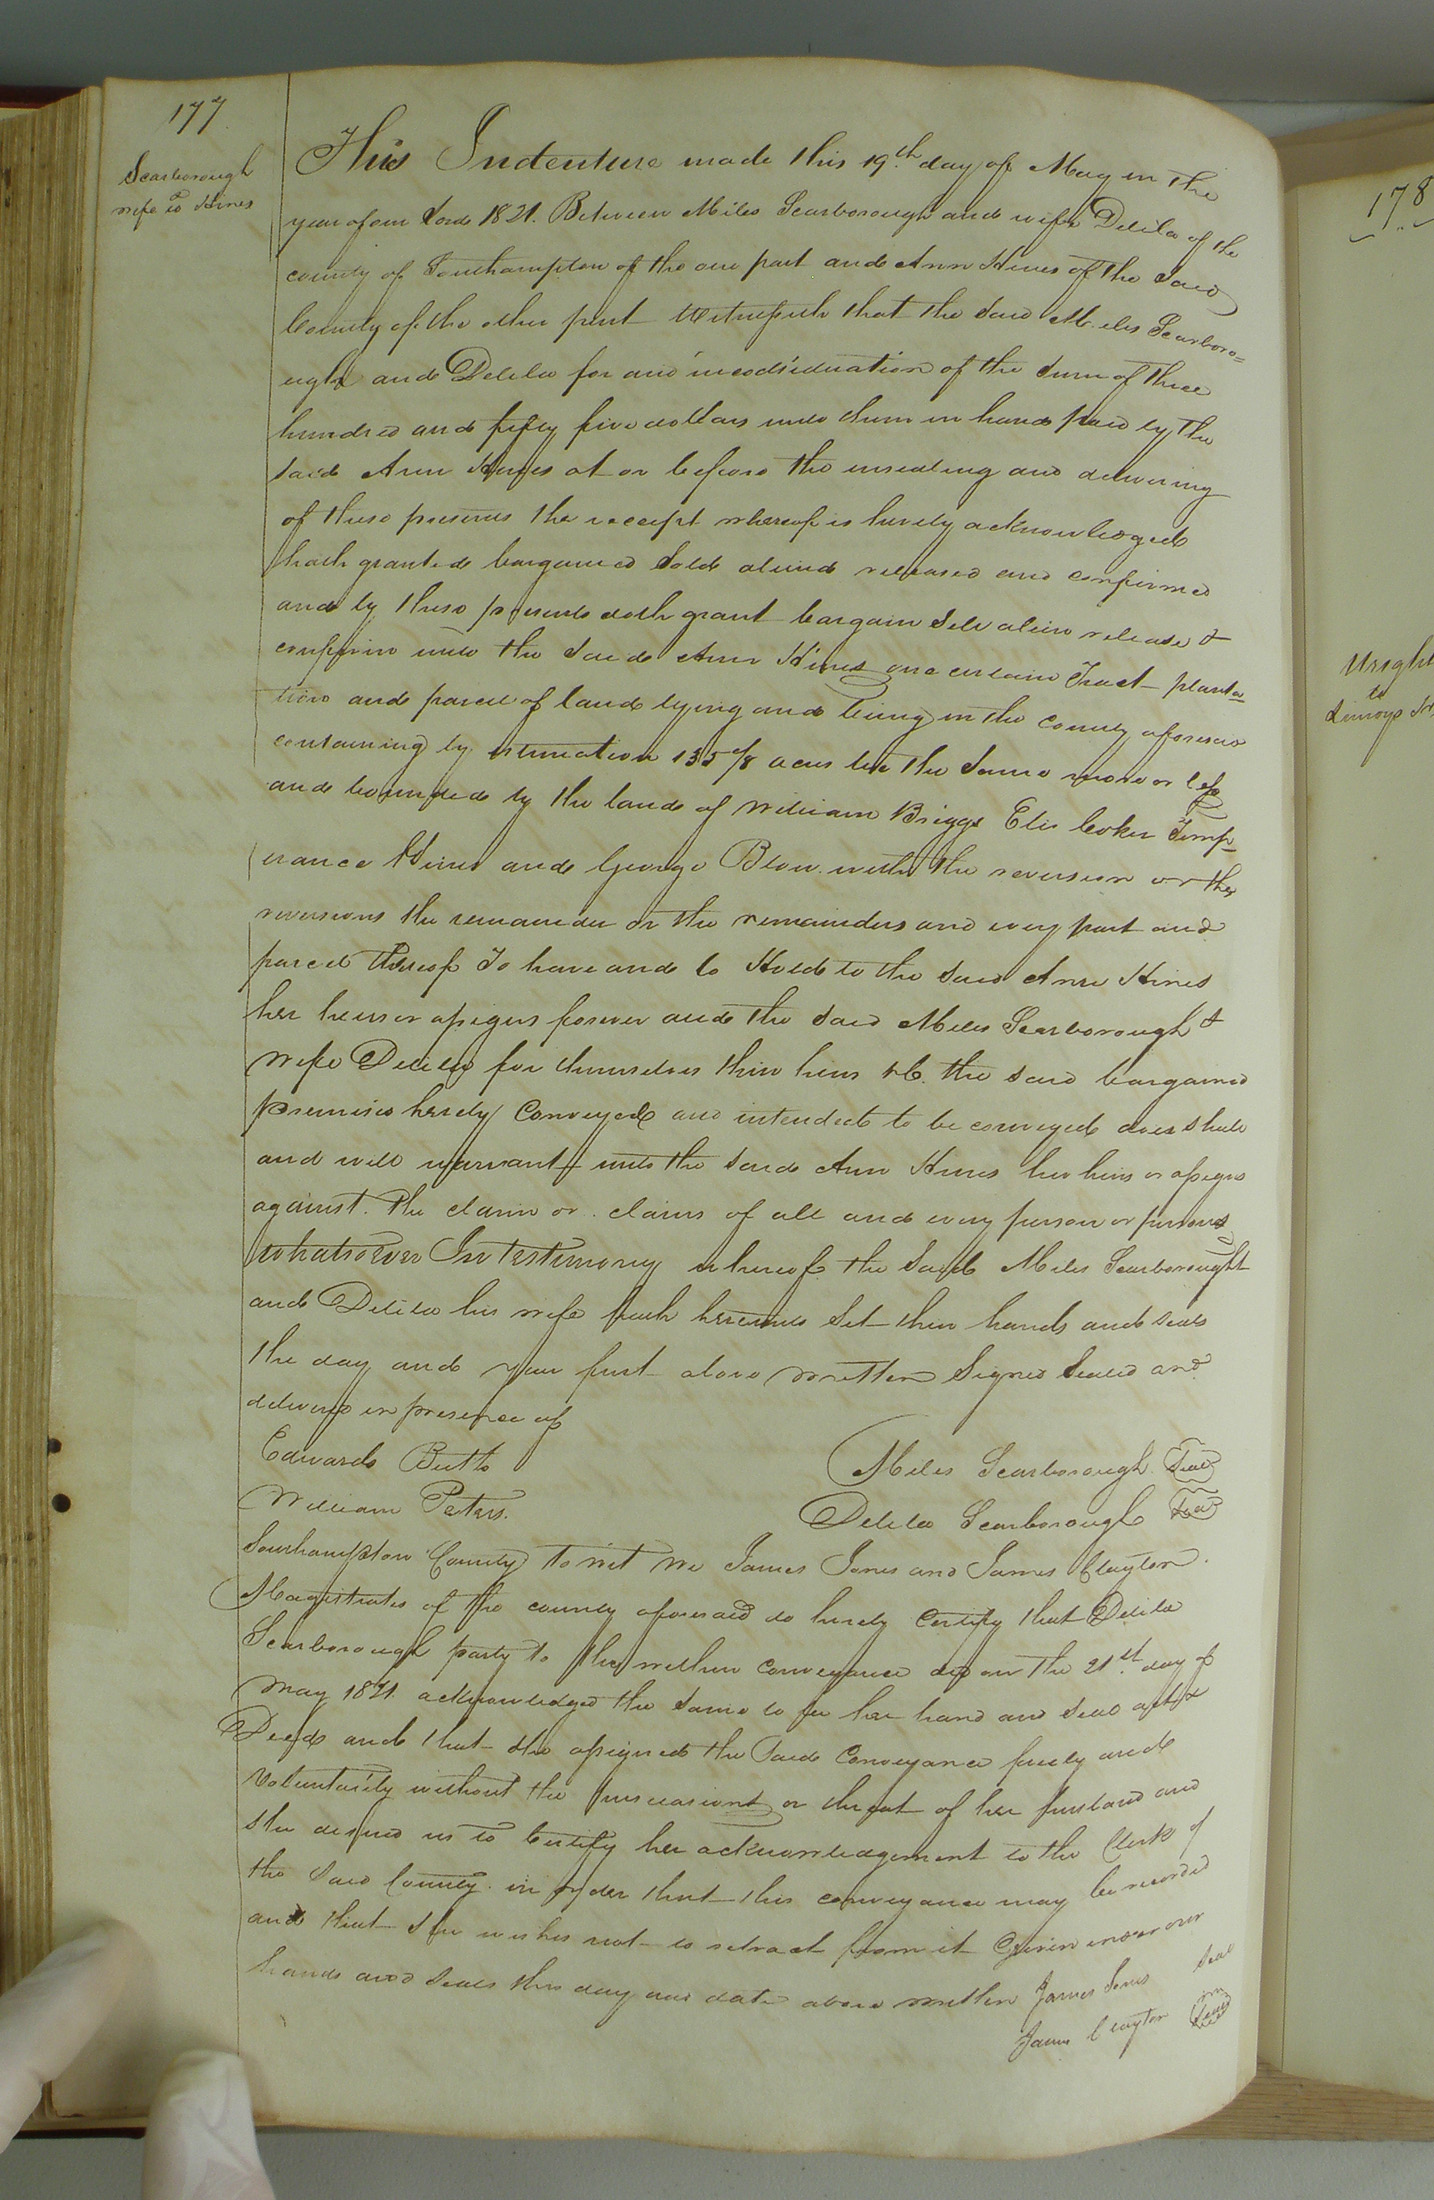 177
Scarborough
wife to Hines
This Indenture made this 19th day of May in the
year of our Lord 1821. Between Miles Scarborough and wife Delila of the
county of Southampton of the one part and Ann Hines of the said
County of the other part Witnesseth that the said Miles Scarboro=
ugh and Delila for and in consideration of the sum of three
hundred and fifty five dollars unto them in hand paid by the
said Ann Hines at or before the ensealing and delivering
of these presents the receipt whereof is hereby acknowledged
hath granted bargained sold aliened released and confirmed
and by these presents doth grant bargain sell alien release &
confirm unto the said Ann Hines one certain Tract planta=
tion and parcel of land lying and being in the county aforesaid
containing by estimation 135 acres be the same more or less
and bounded by the lands of William Briggs Coker Temp=
erance Hines and George Blow with the reversion or the
reversions the remainder or the remainders and every part and
parcel thereof To have and to Hold to the said Ann Hines
her heirs or assigns forever and the said Miles Scarborough &
wife Delila for themselves their heirs &c. the said bargained
premises hereby Conveyed and intended to be conveyed does shall
and will warrant unto the said Ann Hines her heirs or assigns
against. the claim or claims of all and every person or persons
whatsoever In testimony whereof the said Miles Scarborought
and Delila his wife hath hereunto Set their hands and seals
the day and year first above written Signed Sealed and
deliverd in presence of
Edwards Butts
Miles Scarborough Seal
William Peters.
Delila Scarborough Seal
Southampton County to wit We James Jones and James Clayton
Magistrates of the county aforesaid do hereby Certify that Delila
Scarborough party to the within conveyance did on the 21st day of
May 1821 acknowledged the same to be her hand and seal
Deed and that she assigned the said Conveyance freely and
Voluntarily without the or threat of her husband and
she desired us to Certify her acknowledgement to the Clerk of
the said County in order that this conveyance may be recorded
and that she wishes not to retract from it Given under our
hands and seals this day and date above written James Jones Seal
James Clayton Seal
178
Wright
to